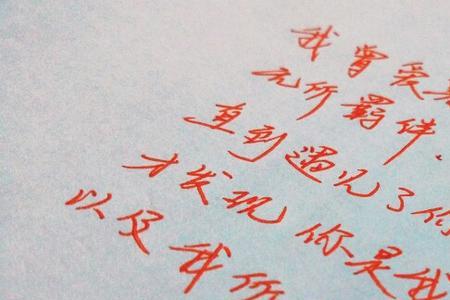 我曾爱
无所羁绊、
直到遇见了你
才发现你是我
以及我所